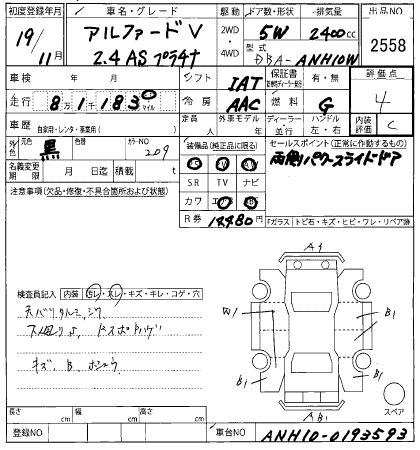 初度登録年月 車名・グレード 駆動 ドア数・形状 排気量 出品NO
19/11月 アルファードV 2WD・4WD 5W 2400cc 2558
2.4 AS プラチナ 型式 DBA-ANH10W
車検 年 月 シフト IAT 保証書 有・無 評価点
走行 8万1183 マイル 冷房 AAC 燃料 G 4
車歴 自家用・レンタ・事業用( ) 定員 人 外車モデル ディーラー・並行 ハンドル 左・右 内装評価 C
外色 元色 黒 色替 カラーNO 209 装備品(純正品に限る) セールスポイント(正常に作動するもの)
両側パワースライドドア
名義変更期限 月 日迄 積載 t SR TV ナビ
注意事項(欠品・修復・不具合箇所および状態) カワ
R券 14480円 Fガラス(トビ石・キズ・ヒビ・ワレ・リペア跡)
A1
検査員記入 内装(ヨレ・スレ・キズ・キレ・コゲ・穴)
天バリタルミ、シワ
W1 B1
B1
キズ、B、
B1 B1
スペア
長さ cm 幅 cm 高さ cm AB1
登録NO 車台NO ANH10-0193593